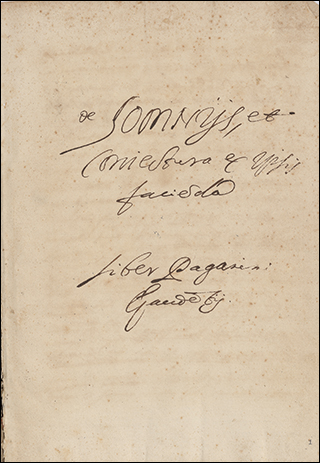 de Somnijs, et
Coniectura ex ipsis
faciēda
Liber Paganini
Gaudētij